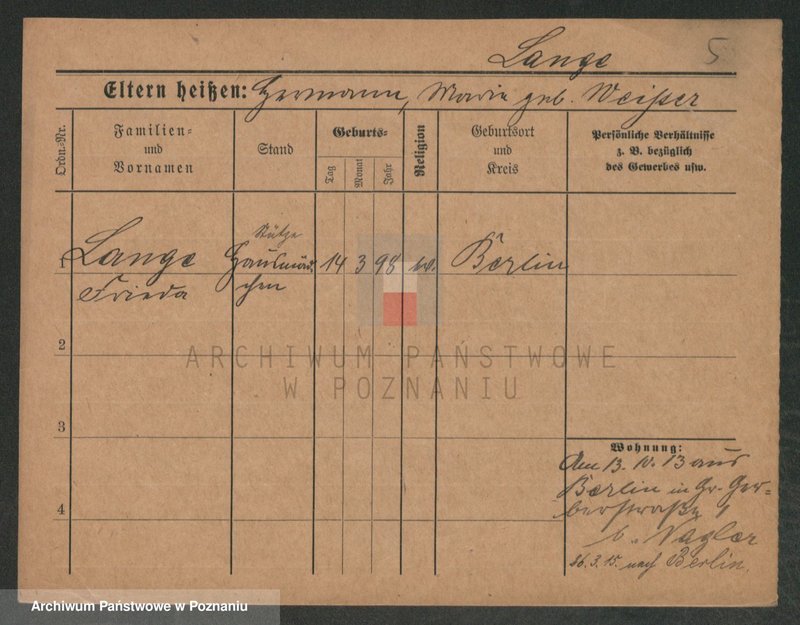 Lange 5
Eltern heißen: Hermann, Marie geb. Weißer
Ordn.-Nr.
Familien-
und
Vornamen
Stand
Geburts-
Tag
Monat
Jahr
Religion
Geburtsort
und
Kreis
Persönliche Verhältnisse
z. B. bezüglich
des Gewerbes usw.
Stütze
1 Lange Hausmäd- 14 3 98 ev. Berlin
Frieda chen
2
ARCHIWUM PAŃSTWOWE
W POZNANIU
3
Wohnung:
Am 13. 10. 13 aus
Berlin in Gr. Ger-
berstraße 1
b. Nagler
26.3.15. nach Berlin.
4
Archiwum Państwowe w Poznaniu